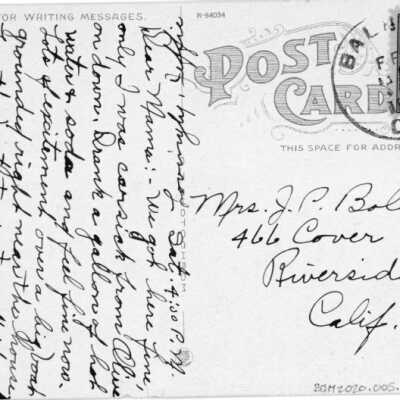 FOR WRITING MESSAGES.
N-84034
POST
CARD
THIS SPACE FOR ADDR
BAL
Mrs. J. P. Bol
466 Cover
Riversid
Calif.
Sat. 4:30 P.M.
Dear Mama:- We got here fine,
only I was carsick from Olive
on down. Drank a gallon of hot
water & soda and feel fine now.
Lots of excitement over a big boat
grounded right near the house
BBM2020.005.